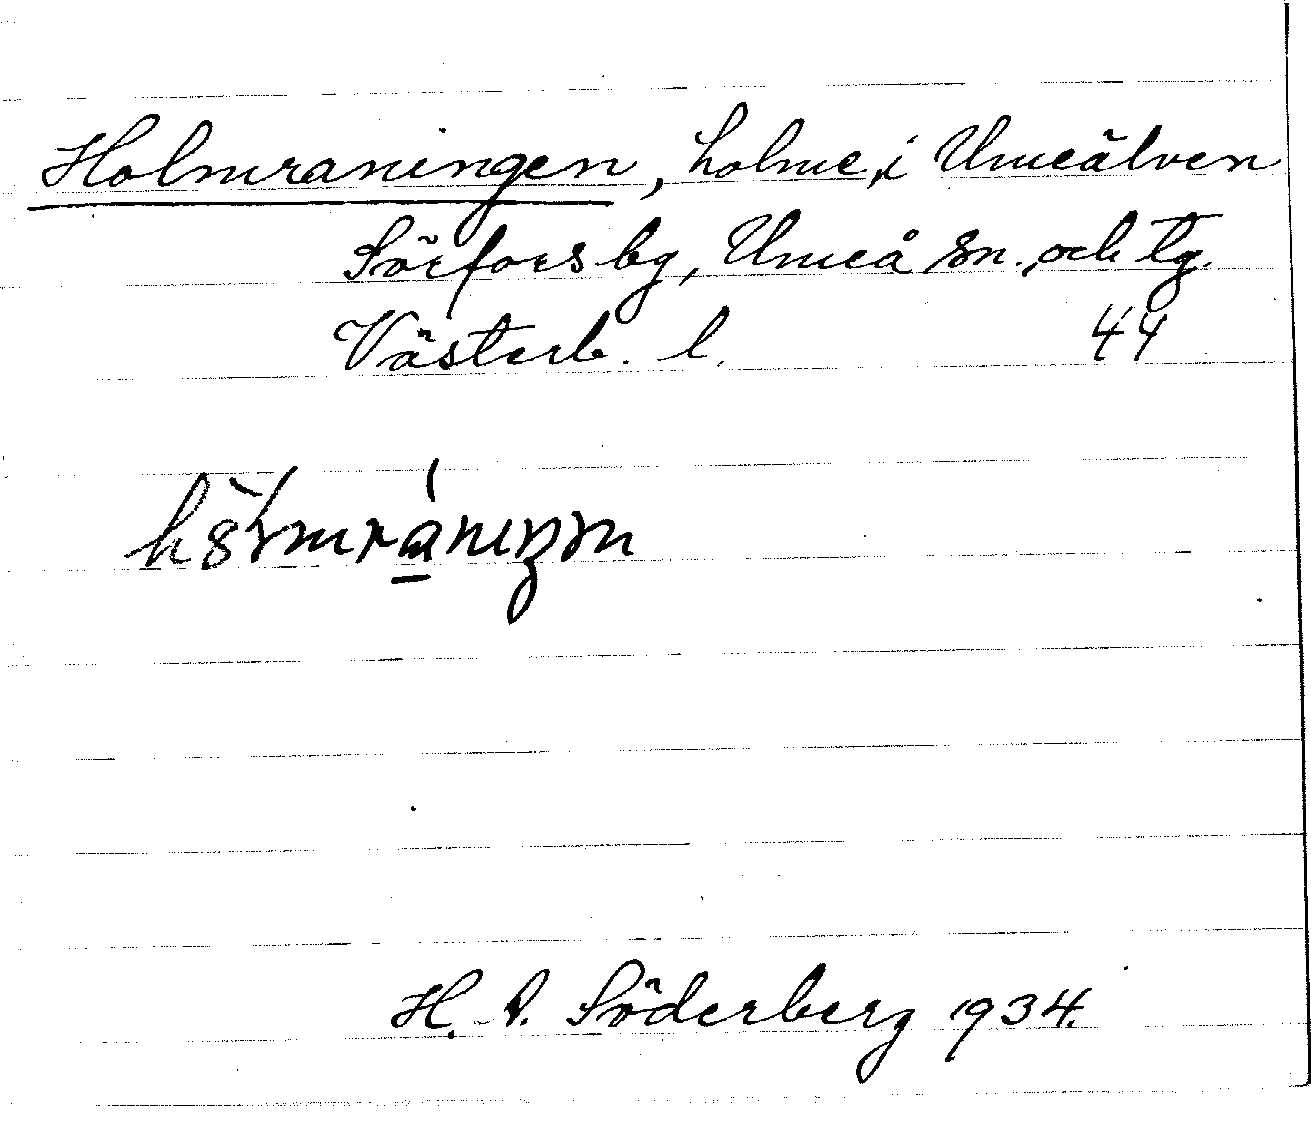 Holmraningen, holme, i Umeälven
Sörfors by, Umeå sn. och tg.
Västerb. l. 44
H. Söderberg 1934.